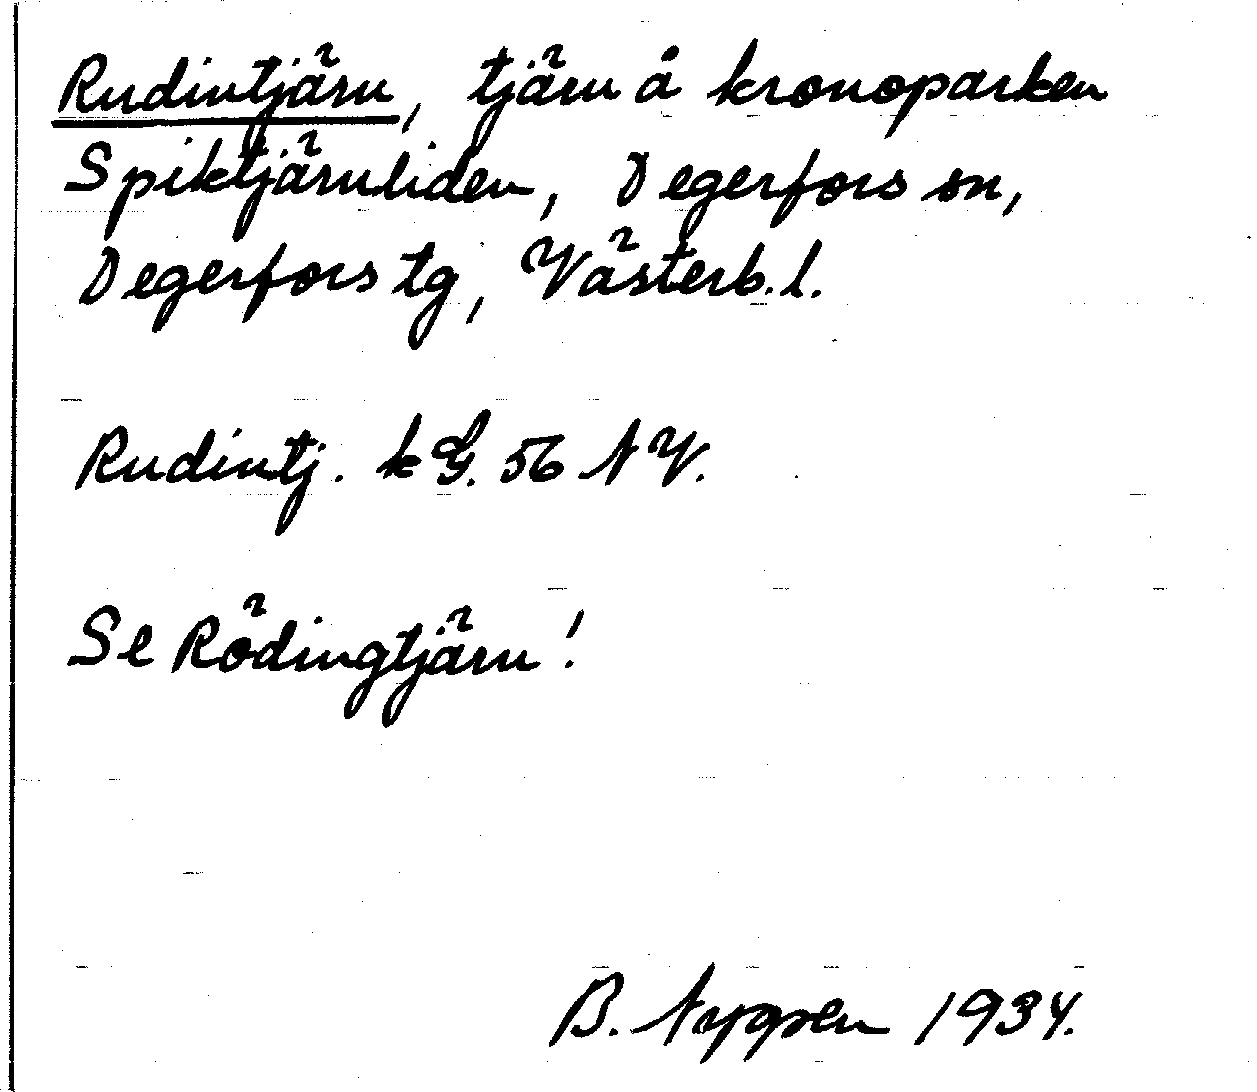 Rudintjärn, tjärn å kronoparken
Spiktjärnliden, Degerfors sn,
Degerfors tg, Västerb. l.
Rudintj. k G. 56 NV.
Se Rödingtjärn!
B. 1934.